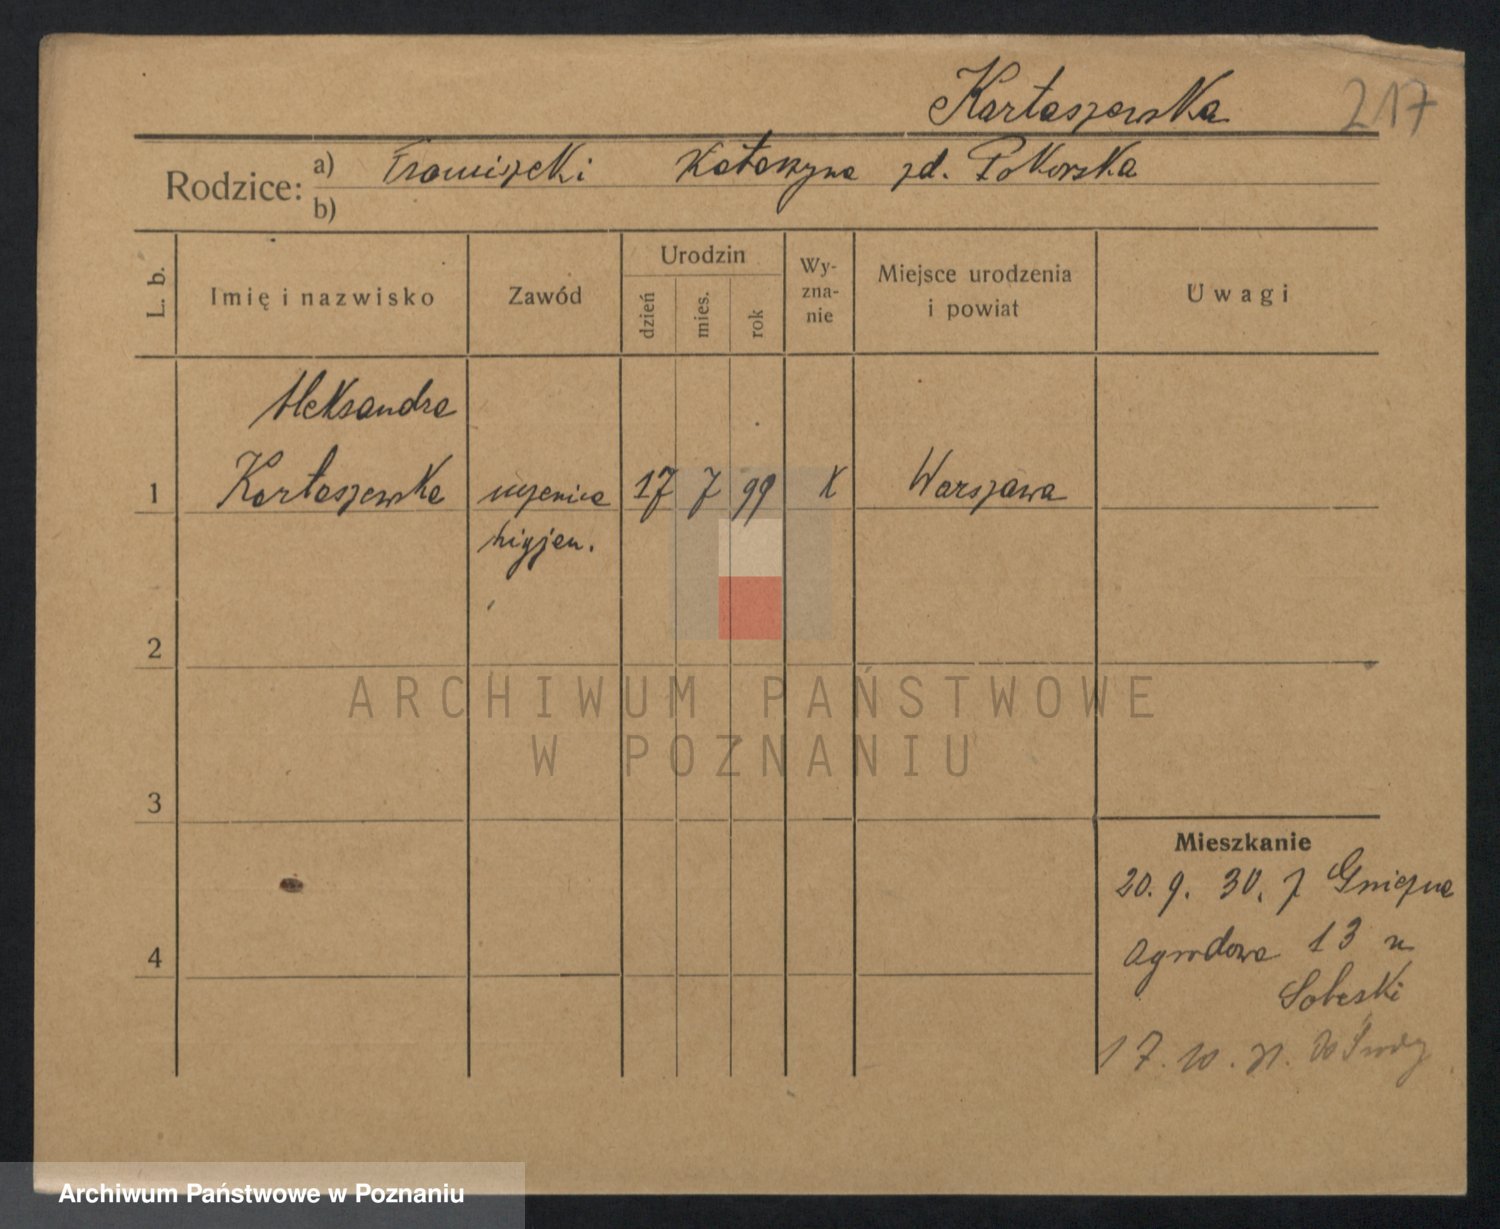 Kartaszewska 217
Rodzice: a) Franciszek i Katarzyna zd. Pokorska
b)
L. b. Imię i nazwisko Zawód Urodzin Wy-zna-nie Miejsce urodzenia i powiat Uwagi
dzień mies. rok
Aleksandra
1 Kartaszewska uczenica 17 7 99 K Warszawa
higjen.
2
ARCHIWUM PAŃSTWOWE
W POZNANIU
3
Mieszkanie
20. 9. 30. z Gniezna
4 Ogrodowa 13 u
Sobeski
17. 10. 31. do Środy
Archiwum Państwowe w Poznaniu